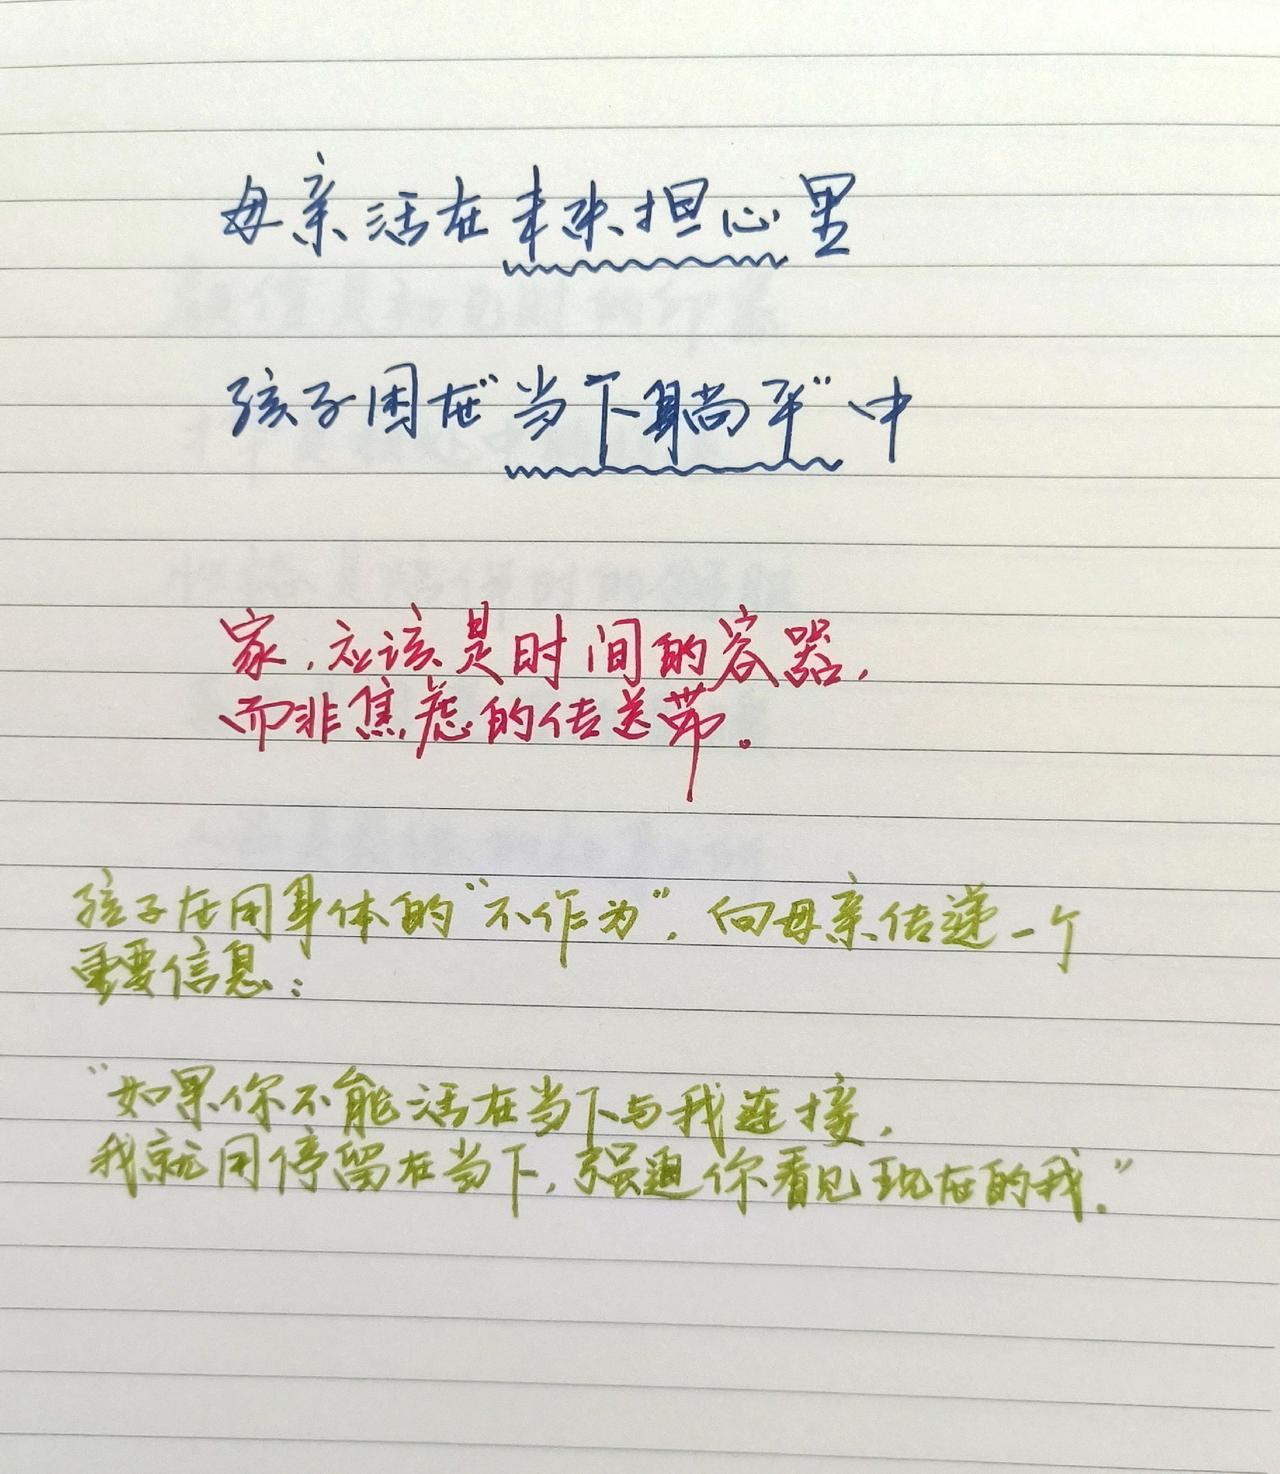 母亲活在未来担心里
孩子困在“当下躺平”中
家，应该是时间的容器，
而非焦虑的传送带。
孩子在用身体的“不作为”，向母亲传递一个
重要信息：
“如果你不能活在当下与我连接，
我就用停留在当下，强迫你看见现在的我。”